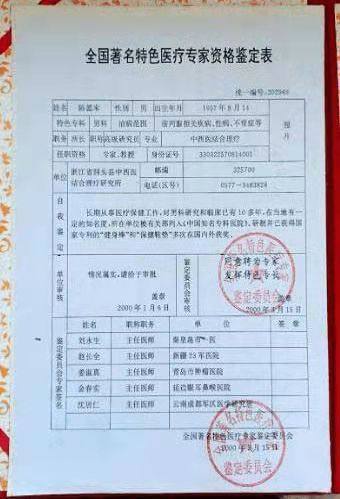 全国著名特色医疗专家资格鉴定表
统一编号:202946
姓名 陈 性别 男 出生年月 1957年8月14
特色专科 男科 治病范围 前列腺相关疾病,性病,不育症等
照片
职务 所长 职称 高级研究员 专业 中西医结合理疗
任职资格 专家、教授 身份证号
单位 浙江省洞头县中西医结合理疗研究所 邮编 325700
电话(区号) 0577-3483824
自我鉴定
长期从事医疗保健工作,对男科研究和临床已有10多年,在当地有一定的知名度,所在单位被有关部列入《中国知名专科医院》,研制已获得国家专利的“健身棒”和“保健鞋垫”多次在国内外获奖。
单位审核 情况属实,请给于审批
盖章
2000年1月6日
鉴定委员会审核 同意聘为专家 发挥特色专长
盖章
2000年8月15日
鉴定委员会专家签名
姓名 职称职务 单位 签章
刘永生 主任医师 秦皇岛市一医
赵长全 主任医师 新疆23军医院
姜淑真 主任医师 青岛市肿瘤医院
金春实 主任医师 延边眼耳鼻喉医院
沈居仁 主任医师 云南成都军区医学研究所
全国著名特色医疗专家鉴定委员会
2000年8月15日
鉴定委员会